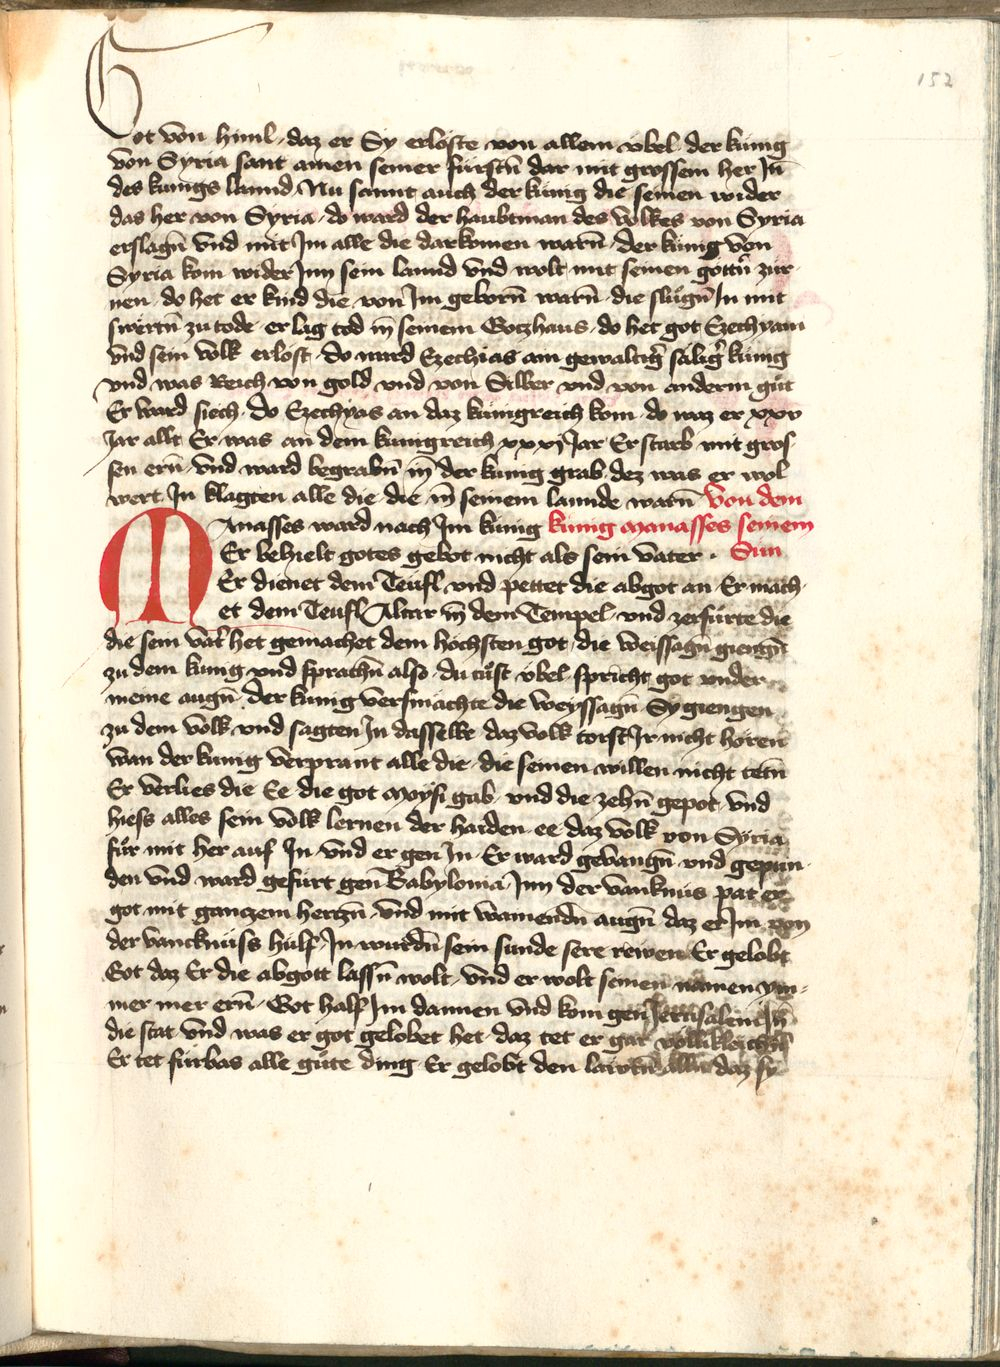 152
Got von himl · daz er Sy erloste von allem vbel · der kunig
von Syria sant ainen seiner furstn̄ dar mit grossem her In̄
des kunigs lannd · Nu sannt auch der kunig die seinen wider
das her von Syria · do ward der haubtman des volkes von Syria
erslagn̄ vnd mit Im alle die darkomen warn̄ · der kunig von
Syria kom wider Inn sein lannd vnd wolt mit seinen gottn̄ zur
nen · do het er kind die von Im geborn̄ warn̄ · die slugn̄ In mit
swertn̄ zu tode · er lag tod in̄ seinem Gotzhaus · do het got Ezechyam
vnd sein volk erlost · do ward Ezechias ain gewaltiḡ saliḡ kunig
vnd was Reich von gold vnd von Silber vnd von anderm gut
Er ward siech · do Ezechyas an daz kunigreich kom · do waz er xxv
Jar allt · Er was an dem kunigreich xxxj Jar Er starb mit gros
sen ern̄ · vnd ward begrabn̄ in̄ der kunig grab · dez was er wol
wert · In klagten alle die die in̄ seinem lannde warn̄ Von dem
Manasses ward nach Im kunig kunig Manasses seinem
Er behielt gotes gebot nicht als sein vater · Sun
Er dienet dem Teufl vnd pettet die abgot an · Er mach
et dem Teufl Altar in̄ dem Tempel · vnd zerfurte die
die sein vat̄ het gemachet dem hochsten got · die weissagn̄ giengn̄
zu dem kunig vnd sprachn̄ also · du tust vbel · spricht got vnder
meine augn̄ · der kunig versmachte die weyssagn̄ · Sy giengen
zu dem volk vnd sagten In dasselbe · daz volk torst Ir nicht horen
wan der kunig verprant alle die · die seinen willen nicht tetn̄
Er verlies die Ee die got Moysi gab · vnd die zehn̄ gepot · vnd
hiess alles sein volk lernen der haiden ee · daz volk von Syria
fur mit her auf In · vnd er gen In · Er ward gebangn̄ vnd gepun
den vnd ward gefurt gen̄ Babylonia · Inn der vanknus pat er
got mit ganczem hertzn̄ · vnd mit wainendn̄ augn̄ daz er Im von
der vancknuss hulf · In wurdn̄ sein sunde sere rewen · Er gelobt
Got daz Er die abgott lassn̄ wolt · vnd er wolt seinen namen ym
mer mer ern̄ · Got half Im dannen vnd kom gen Jerusalem In̄
die stat vnd was er got gelobet het · daz tet er gar
Er tet furbas alle gute ding · Er gelobt den allen daz sy